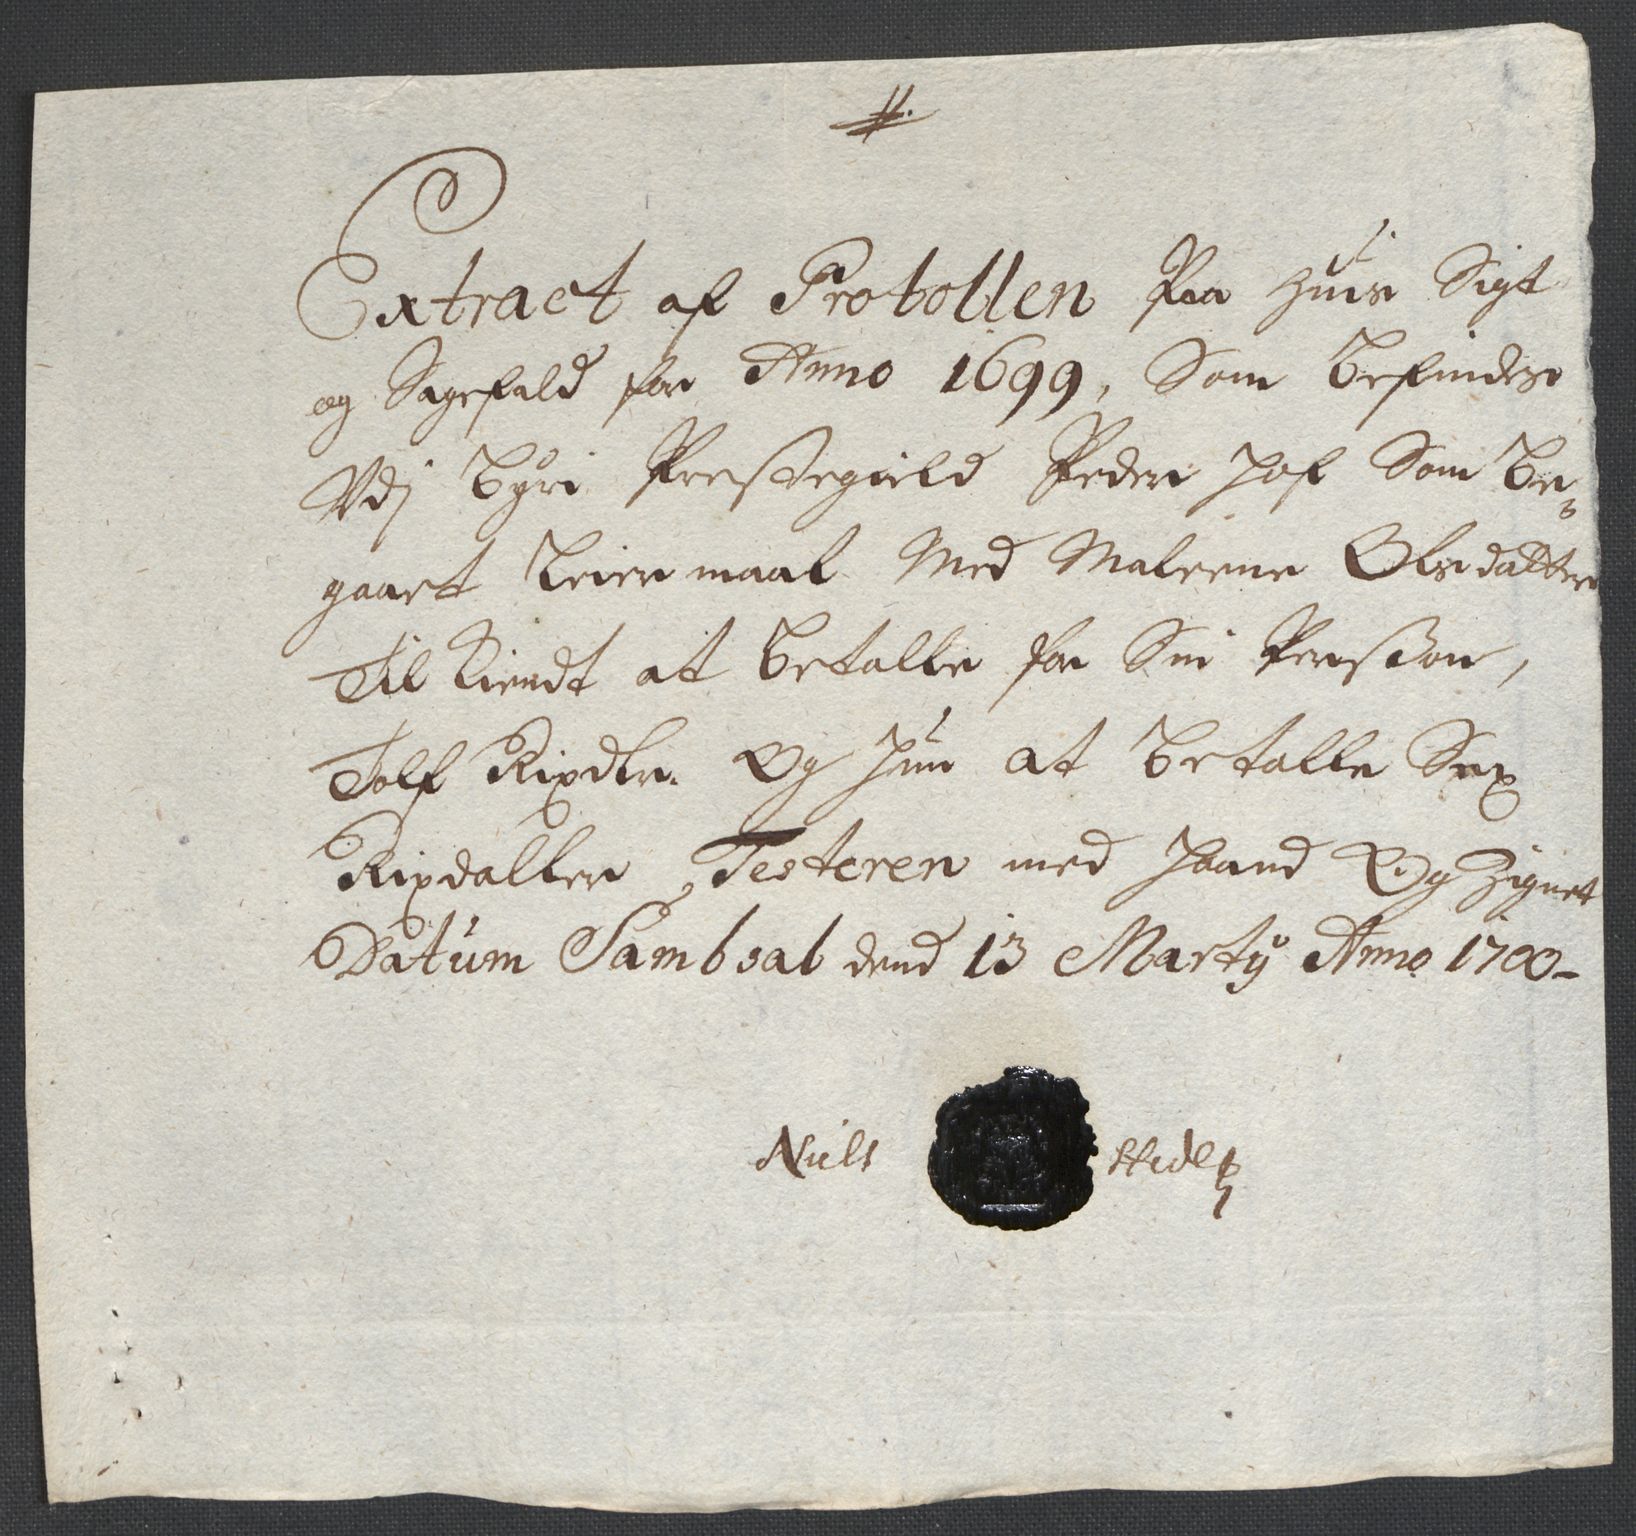 #.
Extract af Protollen Paa huis Sigt
og Sagefald for Anno 1699, Som befindes
Vdj Byri Prestegield Peder Hof Som be-
gaaet Leiermaal Med Maleene Olsdatter
Til kiendt at betalle for Sin Persson,
Tolf Rixdlr. Og Hun at betalle Sex
Rixdaller, Testerer med Haand Og Zignet
Datum Sambsal dend 13 Martÿ Anno 1700-
Niels